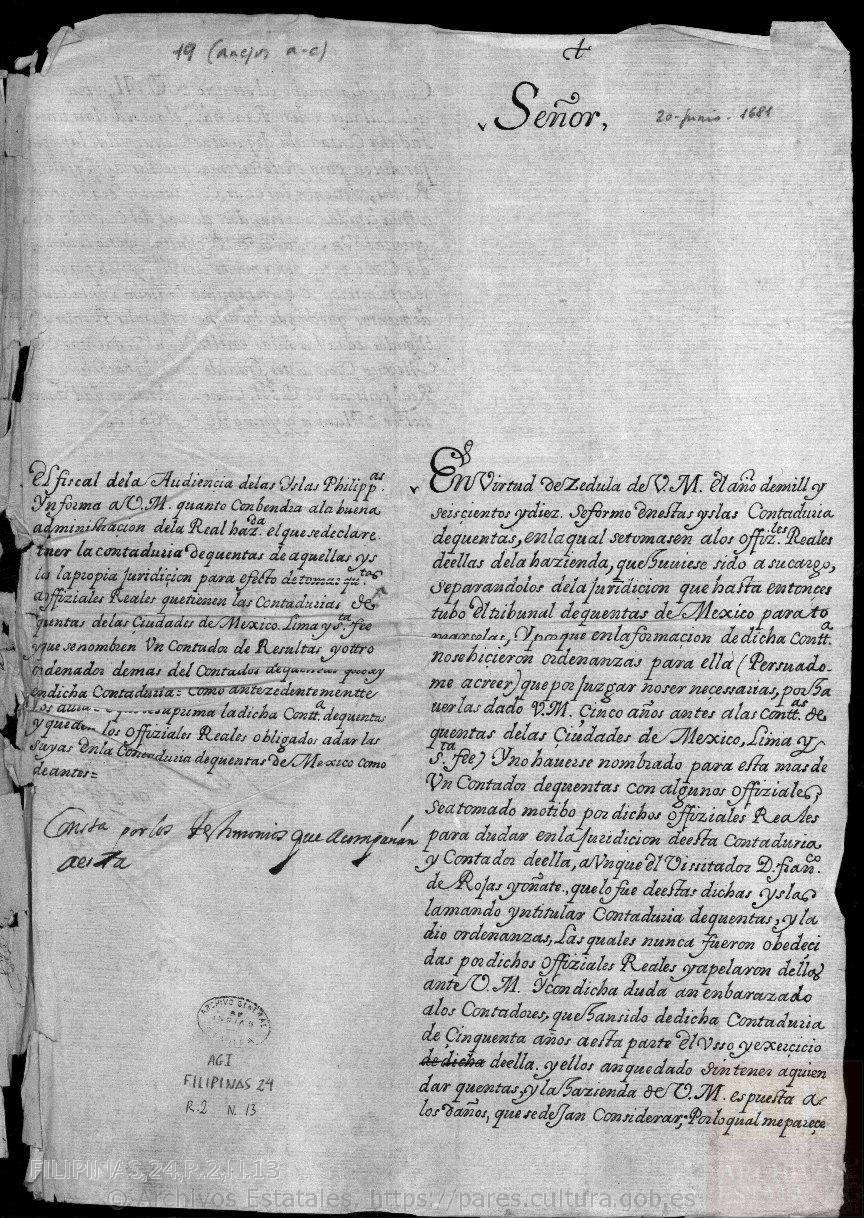 19 (anejos a-c)
+
Señor,
20-Junio-1681
El fiscal dela Audiencia delas Yslas Philippas.
Ynforma a V.M. quanto Conbendra ala buena
administracion dela Real hazda. el que se declare
tner la contaduria dequentas de aquellas ys
las la propia Juridicion para efecto de tomar qutas
a offiziales Reales que tienen las Contadurias de
quntas delas Çiudades de Mexico. Lima y sta. fee
y que se nombren Vn Contador de Resultas y ottro
ordenador demas del Contador dequentas que ay
en dicha Contaduria = Como antezedentementte
los auia
suprima la dicha Contta. dequentas
y queden los Offiziales Reales obligados a dar las
suyas en la Contaduria dequentas de Mexico como
de antes =
Consta por los testimonios que acompañan
aesta
En Virtud de Zedula de V.M. el año de mill y
seiscientos y diez. se formo en estas yslas Contaduria
dequentas, en la qual se tomasen a los offizles. Reales
de ellas dela hazienda, que huuiese sido a su cargo,
separandolos dela Juridicion que hasta entonces
tubo el tribunal dequentas de Mexico para to
marselas, Y porque en la formacion de dicha Contta.
no se hicieron ordenanzas para ella (Persuado-
me a creer) que por Juzgar no ser necessarias, por ha
uerlas dado V.M. Cinco años antes a las Conttas. de
quentas delas Çiudades de Mexico, Lima y
sta. fee) Y no hauerse nombrado para esta mas de
Vn Contador dequentas con algunos offiziales,
se a tomado motibo por dichos offiziales Reales
para dudar en la Juridicion de esta Contaduria
y Contador de ella, a Vnque el Vissitador D. franco.
de Rojas y oñate, que lo fue de estas dichas yslas
la mando yntitular Contaduria dequentas, y la
dio ordenanzas, Las quales nunca fueron obedeci
das por dichos offiziales Reales y apelaron dellas
ante V.M. Y con dicha duda an enbarazado
a los Contadores, que han sido de dicha Contaduria
de Çinquenta años a esta parte el Vsso y exerçicio
de dicha de ella. y ellos an quedado sin tener a quien
dar quentas, y la hazienda de V.M. espuesta a
los daños, que se dejan Considerar; Por lo qual me pareçe
ARCHIVO GENERAL DE INDIAS
AGI
FILIPINAS 24
R.2 N.13
FILIPINAS,24,R.2,N.13
© Archivos Estatales, https://pares.cultura.gob.es